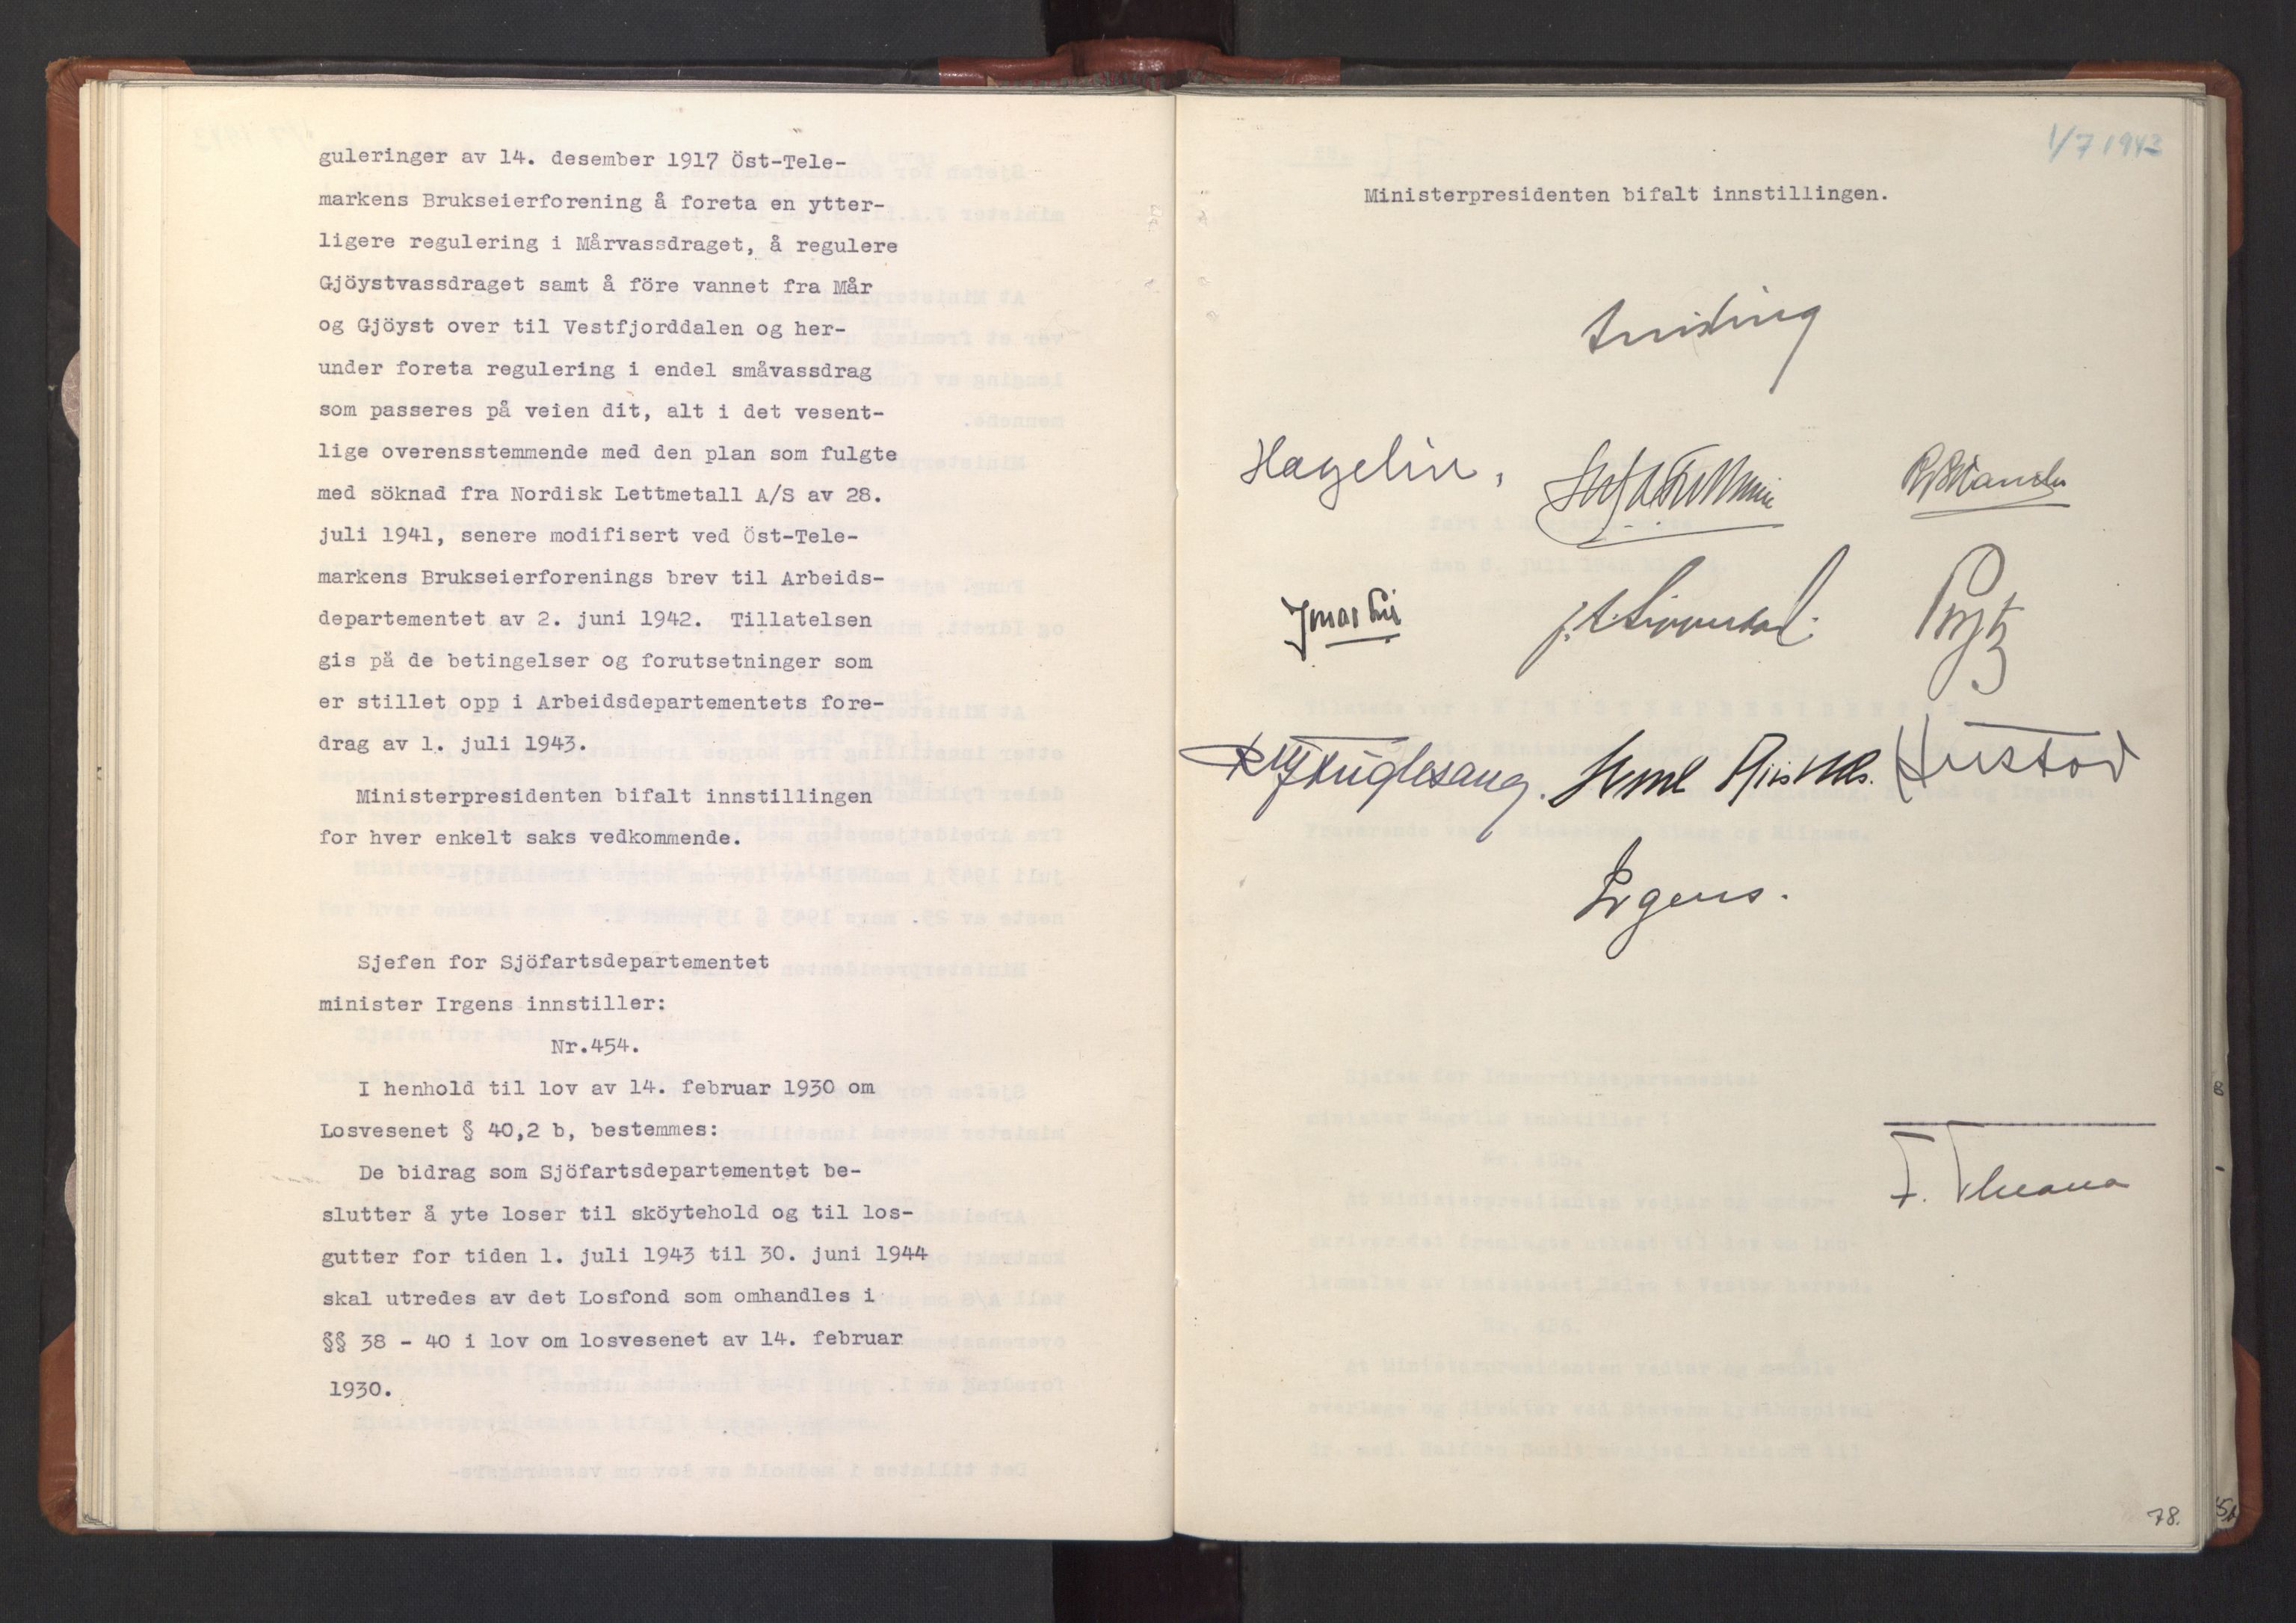 guleringer av 14. desember 1917 Öst-Tele-
markens Brukseierforening å foreta en ytter-
ligere regulering i Mårvassdraget, å regulere
Gjöystvassdraget samt å före vannet fra Mår
og Gjöyst over til Vestfjorddalen og her-
under foreta regulering i endel småvassdrag
som passeres på veien dit, alt i det vesent-
lige overensstemmende med den plan som fulgte
med söknad fra Nordisk Lettmetall A/S av 28.
juli 1941, senere modifisert ved Öst-Tele-
markens Brukseierforenings brev til Arbeids-
departementet av 2. juni 1942. Tillatelsen
gis på de betingelser og forutsetninger som
er stillet opp i Arbeidsdepartementets fore-
drag av 1. juli 1943.
Ministerpresidenten bifalt innstillingen
for hver enkelt saks vedkommende.
Sjefen for Sjöfartsdepartementet
minister Irgens innstiller:
Nr.454.
I henhold til lov av 14. februar 1930 om
Losvesenet § 40,2 b, bestemmes:
De bidrag som Sjöfartsdepartementet be-
slutter å yte loser til sköytehold og til los-
gutter for tiden 1. juli 1943 til 30. juni 1944
skal utredes av det Losfond som omhandles i
§§ 38 - 40 i lov om losvesenet av 14. februar
1930.
1/7 1943
Ministerpresidenten bifalt innstillingen.
Quisling
Hagelin,
Jonas Lie
Prytz
R J Fuglesang.
Hustad
Irgens.
78.